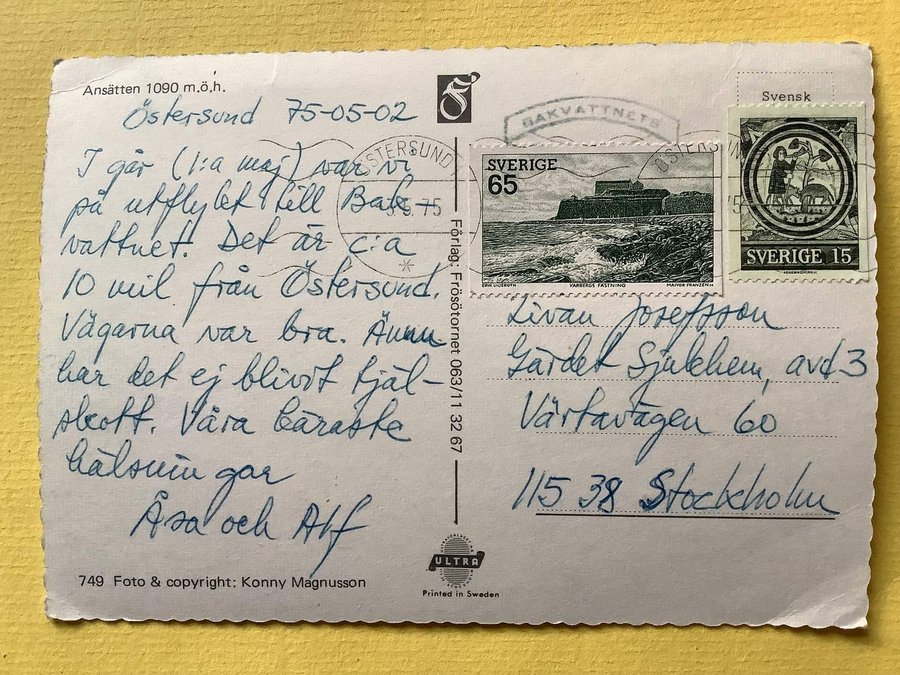 Ansätten 1090 m.ö.h.
Östersund 75-05-02
I går (1:a maj) var vi
på utflykt till Bak-
vattnet. Det är c:a
10 mil från Östersund.
Vägarna var bra. Ännu
har det ej blivit tjäl-
skott. Våra käraste
hälsningar
Åsa och Alf
749 Foto & copyright: Konny Magnusson
Förlag: Frösötornet 063/11 32 67
ULTRA
Printed in Sweden
BAKVATTNETS
Svensk
ÖSTERSUND
5.75
ÖSTERSUN
SVERIGE
65
VARBERGS FÄSTNING
MAJVOR FRANZÉN
SVERIGE 15
Livan Josefsson
Gärdet Sjukhem, avd 3
Värtavägen 60
115 38 Stockholm